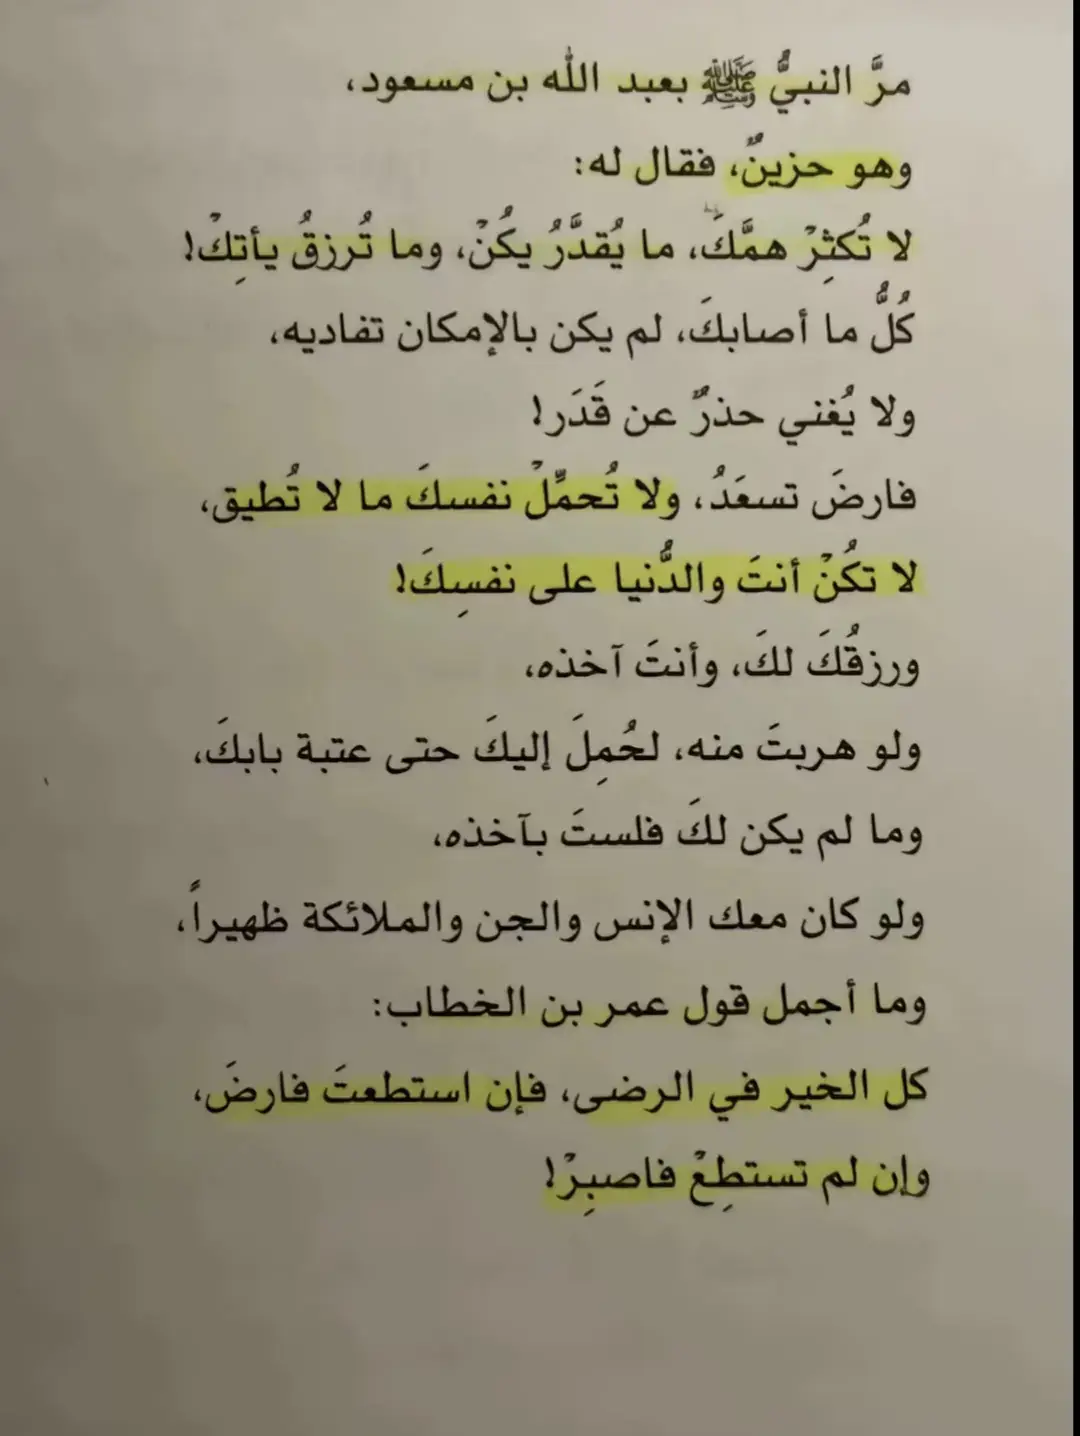 مرَّ النبيُّ ﷺ بعبد الله بن مسعود،
وهو حزينٌ، فقال له:
لا تُكثِرْ همَّكَ، ما يُقدَّرُ يكُنْ، وما تُرزقُ يأتِكْ!
كُلُّ ما أصابكَ، لم يكن بالإمكان تفاديه،
ولا يُغني حذرٌ عن قَدَر!
فارضَ تسعَدُ، ولا تُحمِّلْ نفسكَ ما لا تُطيق،
لا تكُنْ أنتَ والدُّنيا على نفسِكَ!
ورزقُكَ لكَ، وأنتَ آخذه،
ولو هربتَ منه، لحُمِلَ إليكَ حتى عتبة بابكَ،
وما لم يكن لكَ فلستَ بآخذه،
ولو كان معك الإنس والجن والملائكة ظهيراً،
وما أجمل قول عمر بن الخطاب:
كل الخير في الرضى، فإن استطعتَ فارضَ،
وإن لم تستطِعْ فاصبِرْ!